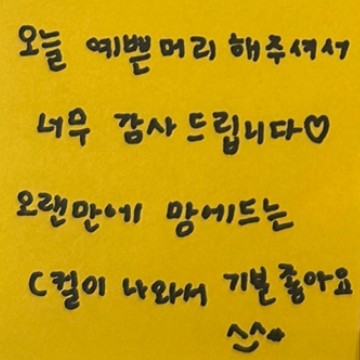 오늘 예쁜머리 해주셔서
너무 감사드립니다♡
오랜만에 맘에드는
C컬이 나와서 기분좋아요
^^